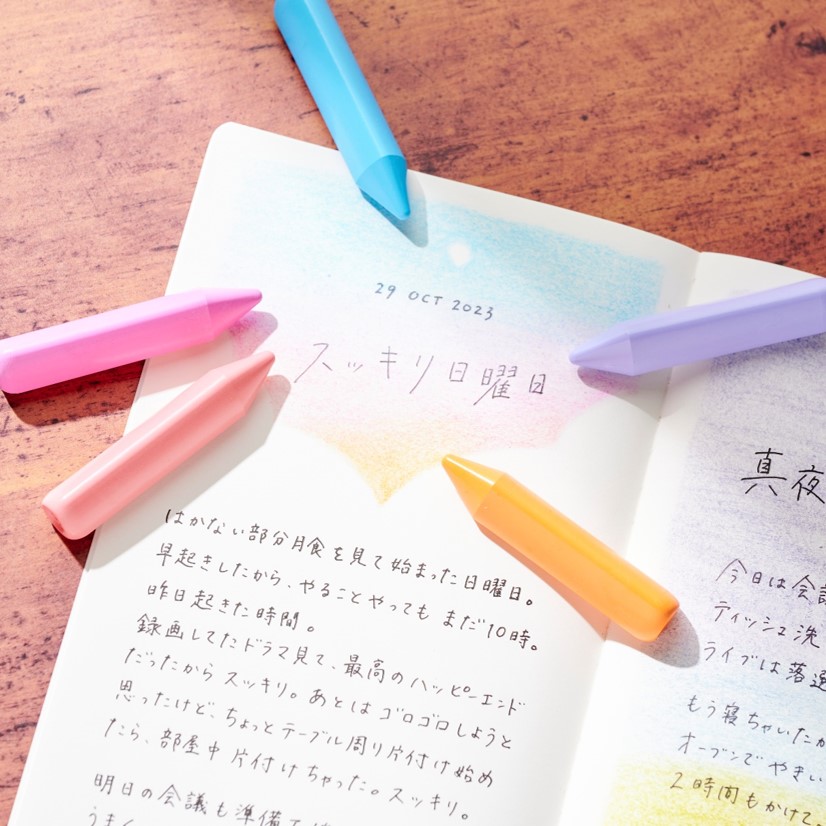 29 OCT 2023
スッキリ日曜日
はかない部分月食を見て始まった日曜日。
早起きしたから、やることやっても まだ10時。
昨日起きた時間。
録画してたドラマ見て、最高のハッピーエンド
だったから スッキリ。あとは ゴロゴロしようと
思ったけど、ちょっとテーブル周り片付け始め
たら、部屋中 片付けちゃった。スッキリ。
明日の会議も準備
うまく
真夜
今日は会議
ティッシュ洗
ライブは落選
もう寝ちゃいたか
オーブンでやきい
2時間もかけて、